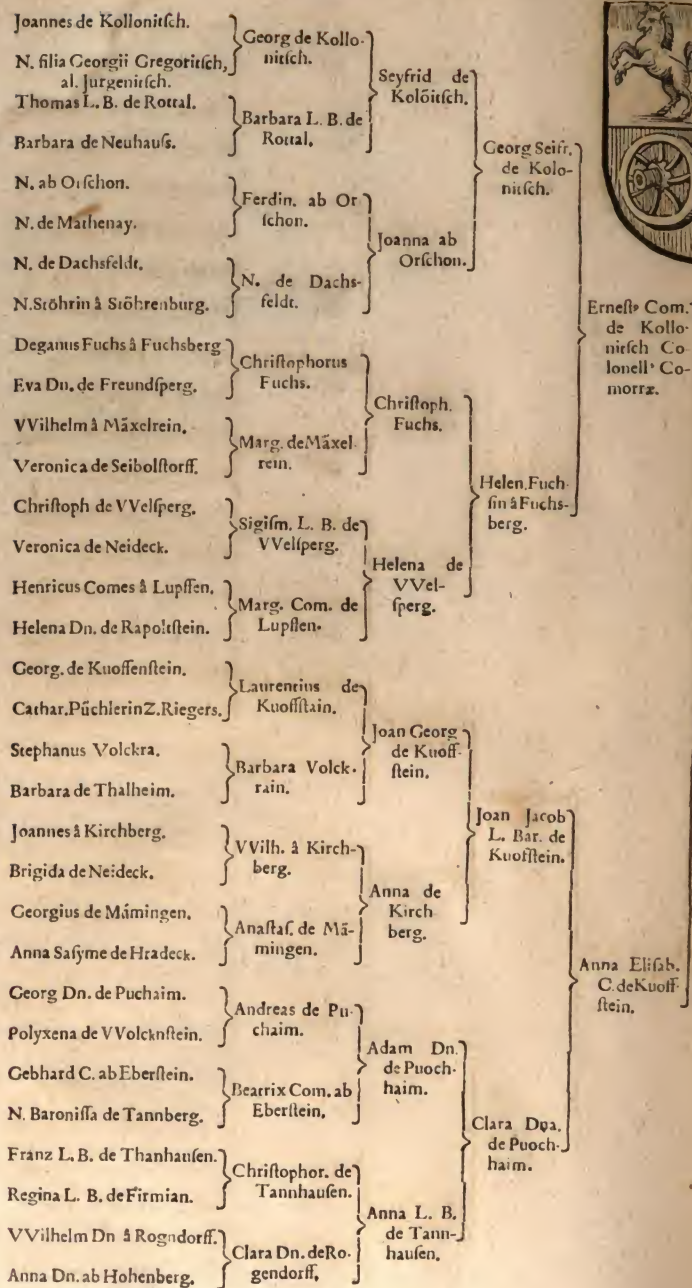 Joannes de Kollonitſch.
N. filia Georgii Gregoritſch,
al. Jurgenitſch.
Thomas L. B. de Rottal.
Barbara de Neuhauſs.
N. ab Orſchon.
N. de Mathenay.
N. de Dachsfeldt.
N. Stöhrin â Stöhrenburg.
Deganus Fuchs â Fuchsberg
Eva Dn. de Freundſperg.
VVilhelm â Mäxelrein.
Veronica de Seibolſtorff.
Chriſtoph de VVelſperg.
Veronica de Neideck.
Henricus Comes â Lupffen.
Helena Dn. de Rapoltſtein.
Georg. de Kuoffenſtein.
Cathar. Püchlerin Z. Riegers.
Stephanus Volckra.
Barbara de Thalheim.
Joannes â Kirchberg.
Brigida de Neideck.
Georgius de Mämingen.
Anna Saſyme de Hradeck.
Georg Dn. de Puchaim.
Polyxena de VVolcknſtein.
Gebhard C. ab Eberſtein.
N. Baroniſſa de Tannberg.
Franz L. B. de Thanhauſen.
Regina L. B. de Firmian.
VVilhelm Dn â Rogndorff.
Anna Dn. ab Hohenberg.
Georg de Kollo-
nitſch.
Barbara L. B. de
Rottal.
Ferdin. ab Or
ſchon.
N. de Dachs-
feldt.
Chriſtophorus
Fuchs.
Marg. de Mäxel
rein.
Sigiſm. L. B. de
VVelſperg.
Marg. Com. de
Lupffen.
Laurentius de
Kuoffſtain.
Barbara Volck-
rain.
VVilh. â Kirch-
berg.
Anaſtaſ. de Mä-
mingen.
Andreas de Pu-
chaim.
Beatrix Com. ab
Eberſtein.
Chriſtophor. de
Tannhauſen.
Clara Dn. de Ro-
gendorff.
Seyfrid de
Kolöitſch.
Joanna ab
Orſchon.
Chriſtoph.
Fuchs.
Helena de
VVel-
ſperg.
Joan Georg
de Kuoff-
ſtein.
Anna de
Kirch
berg.
Adam Dn.
de Puoch-
haim.
Anna L. B.
de Tann-
hauſen.
Georg Seifr.
de Kolo-
nitſch.
Helen. Fuch
ſin â Fuchs-
berg.
Joan Jacob
L. Bar. de
Kuofſtein.
Clara Dna.
de Puoch-
haim.
Erneſt⁹ Com.
de Kollo-
nitſch Co
lonell⁹ Co-
morræ.
Anna Eliſab.
C. de Kuoff
ſtein.